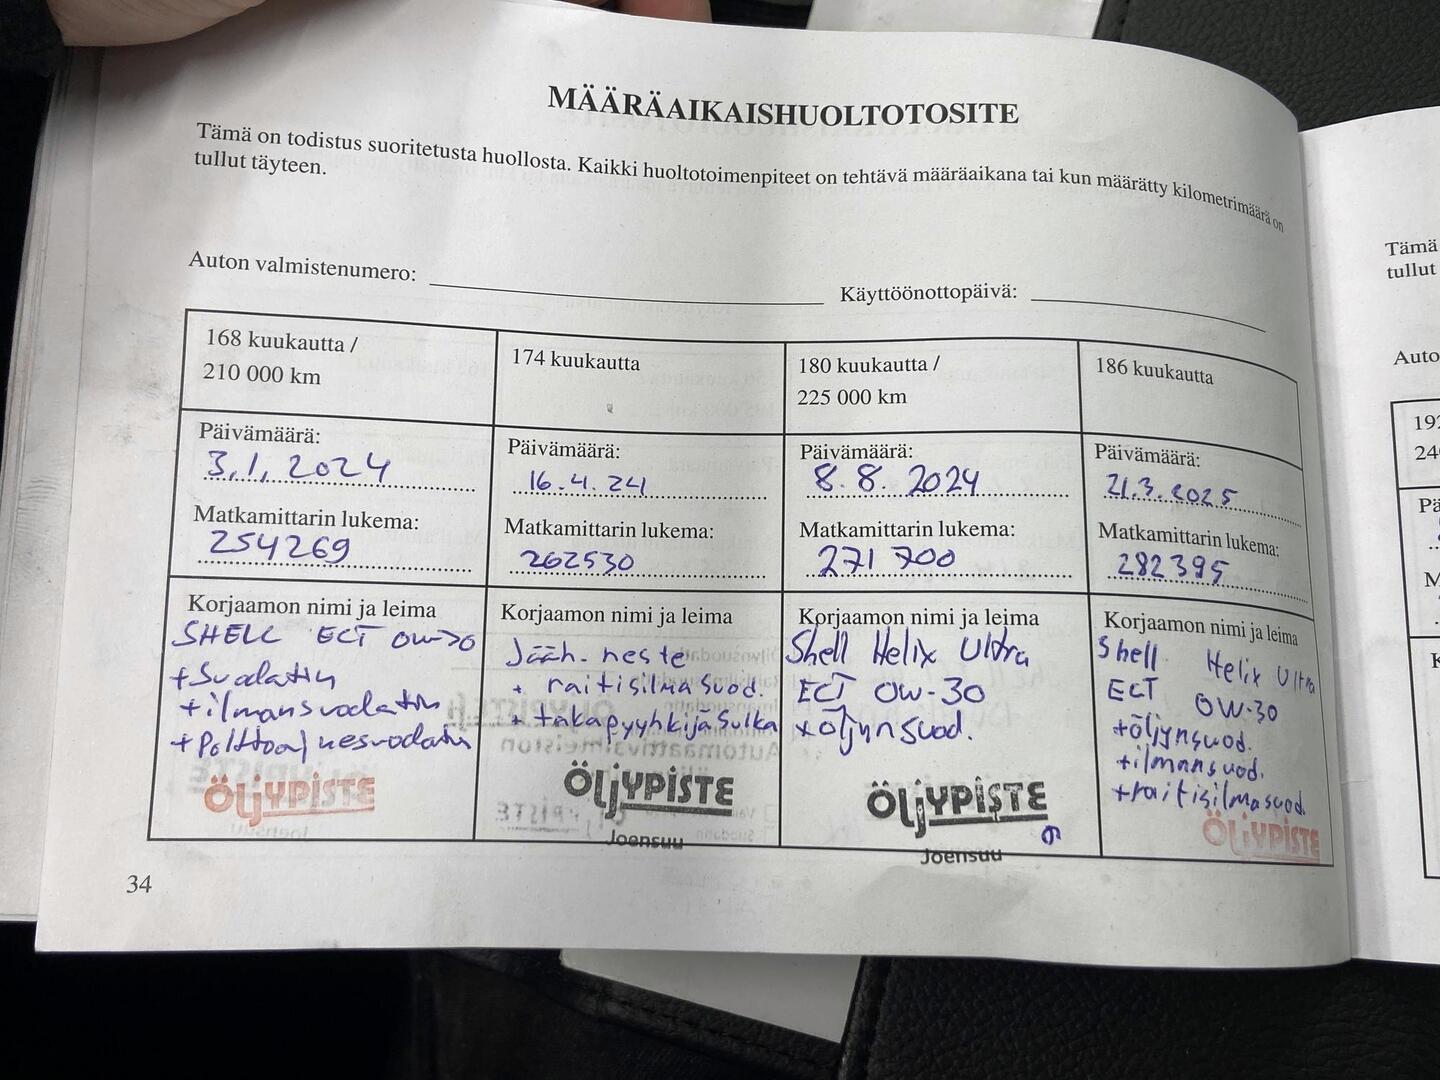 MÄÄRÄAIKAISHUOLTOTOSITE
Tämä on todistus suoritetusta huollosta. Kaikki huoltotoimenpiteet on tehtävä määräaikana tai kun määrätty kilometrimäärä on
tullut täyteen.
Auton valmistenumero:
Käyttöönottopäivä:
168 kuukautta /
210 000 km
Päivämäärä:
3.1.2024
Matkamittarin lukema:
254269
Korjaamon nimi ja leima
SHELL ECT 0W-30
+suodatin
+ilmansuodatin
+Polttoainesuodatin
ÖLJYPISTE
174 kuukautta
Päivämäärä:
16.4.24
Matkamittarin lukema:
262530
Korjaamon nimi ja leima
Jääh. neste
+ raitisilmasuod.
+ takapyyhkijäsulka
ÖLJYPISTE
Joensuu
180 kuukautta /
225 000 km
Päivämäärä:
8.8.2024
Matkamittarin lukema:
271 700
Korjaamon nimi ja leima
Shell Helix Ultra
ECT 0W-30
+öljynsuod.
ÖLJYPISTE
Joensuu
186 kuukautta
Päivämäärä:
21.3.2025
Matkamittarin lukema:
282395
Korjaamon nimi ja leima
Shell Helix Ultra
ECT 0W-30
+öljynsuod.
+ilmansuod.
+raitisilmasuod.
ÖLJYPISTE
34
Tämä
tullut
Auto